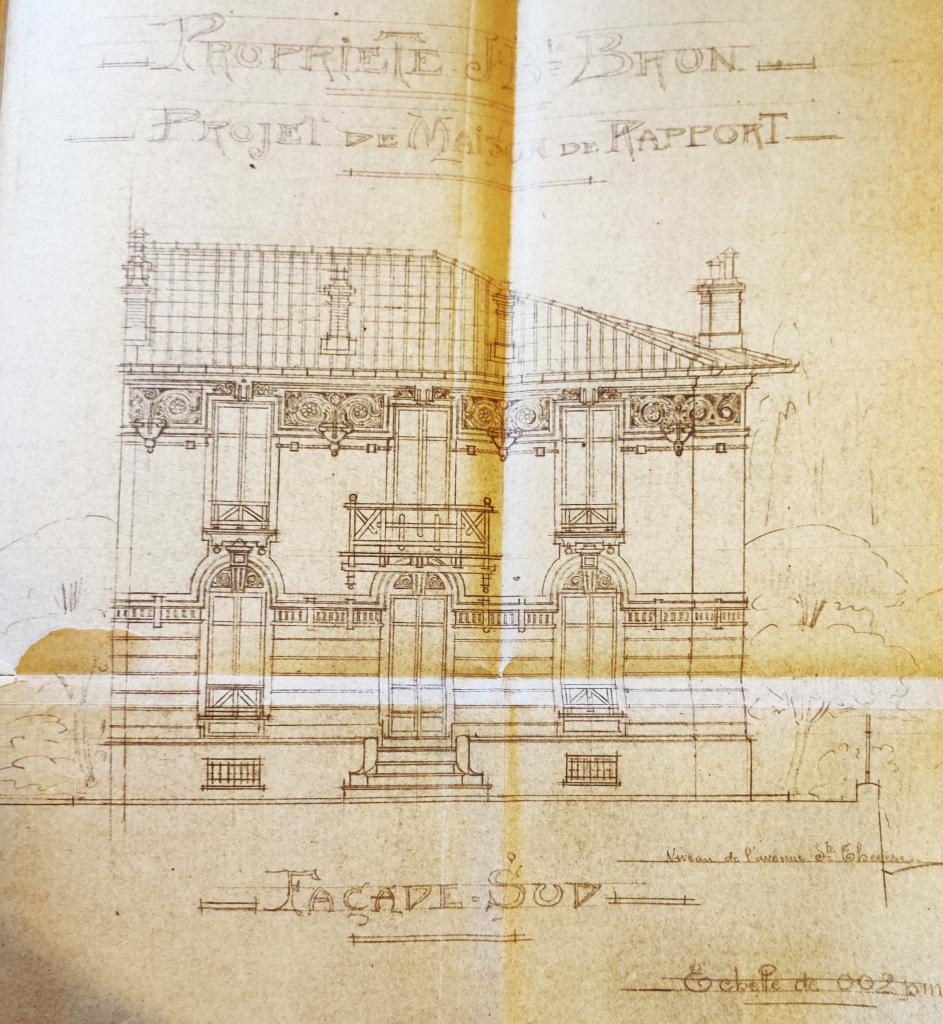 PROPRIETE J-Bte BRUN
PROJET DE MAISON DE RAPPORT
Niveau de l'avenue Ste Therese
FAÇADE-SUD
Echelle de 002 pm